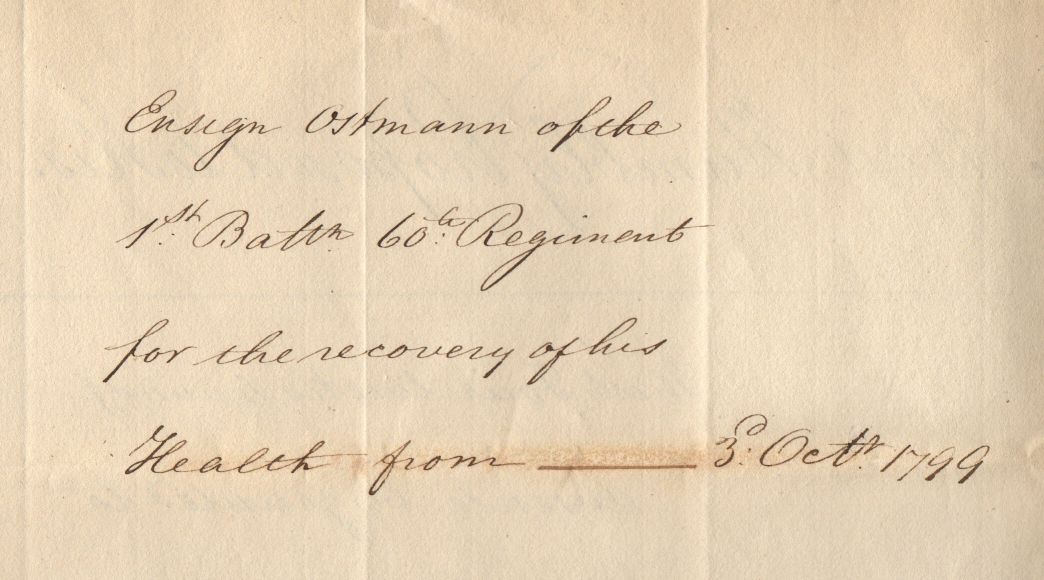 Ensign Ostmann of the
1st Battn 60th Regiment
for the recovery of his
Health from —— 3d. Octr. 1799